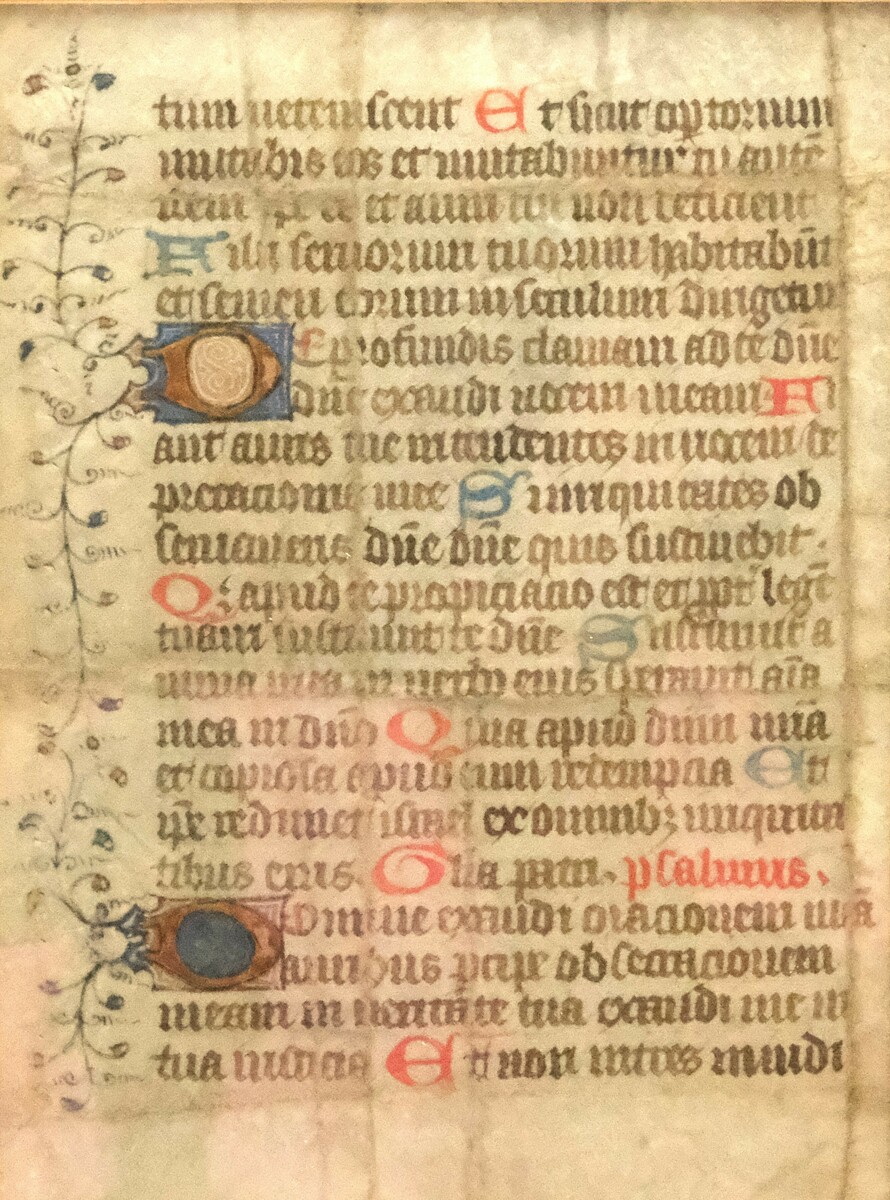 tum ueterascent Et sicut optorium
mutabis eos et mutabuntur tu autē
idem ip̄e es et anni tui non deficient
Filii seruorum tuorum habitabūt
et semen eorum in seculum dirigetur
De profundis clamaui ad te dn̄e
dn̄e exaudi uocem meam Fi
ant aures tue intendentes in uocem de
precacionis mee Si iniquitates ob
seruaueris dn̄e dn̄e quis sustinebit.
Q; apud te propiciacio est et ꝓpt̄ legē
tuam sustinui te dn̄e Sustinuit a
nima mea in uerbo eius sperauit aīa
mea in dn̄o Quia apud dn̄m mīa
et copiosa apud eum redempcio Et
ip̄e redimet israel ex omnib; iniquita
tibus eius. Gl̄ia patri. psalmus.
Domine exaudi oracionem meā
auribus ꝑcipe obsecracionem
meam in ueritate tua exaudi me in
tua iusticia Et non intres in iudi